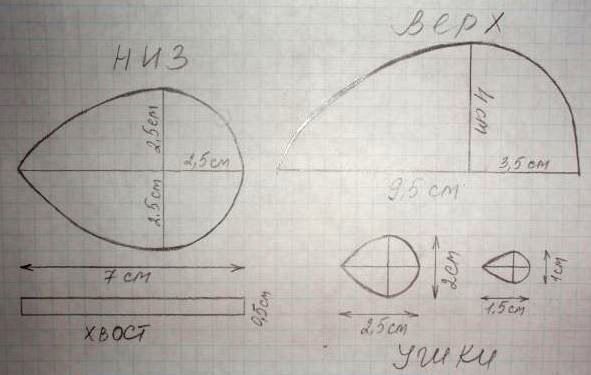 НИЗ
2,5см
2,5см
2.5см
7 см
ХВОСТ
0,5см
ВЕРХ
4см
3,5 см
9,5 см
2см
2,5см
1см
1.5см
УШКИ